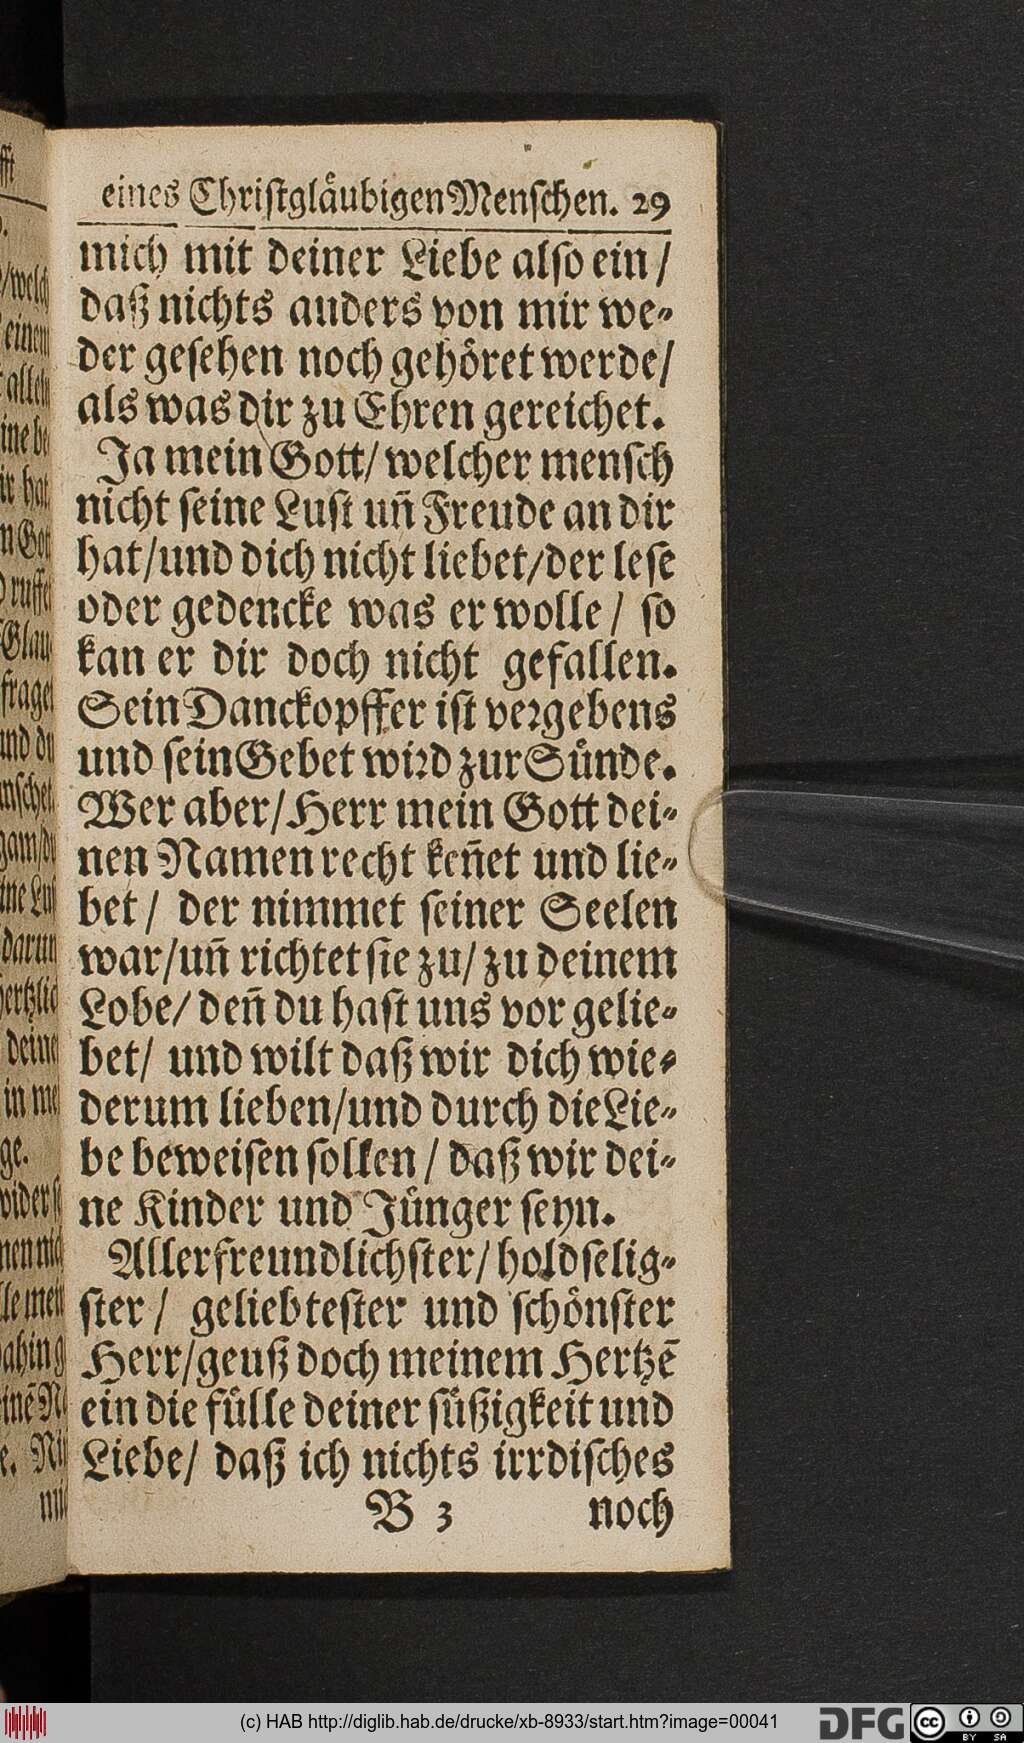 eines Christgläubigen Menschen. 29
mich mit deiner Liebe also ein /
daß nichts anders von mir we-
der gesehen noch gehöret werde/
als was dir zu Ehren gereichet.
Ja mein Gott/ welcher mensch
nicht seine Lust uñ Freude an dir
hat/und dich nicht liebet/der lese
oder gedencke was er wolle / so
kan er dir doch nicht gefallen.
Sein Danckopffer ist vergebens
und sein Gebet wird zur Sünde.
Wer aber/Herr mein Gott dei-
nen Namen recht keñet und lie-
bet / der nimmet seiner Seelen
war/uñ richtet sie zu/ zu deinem
Lobe/ deñ du hast uns vor gelie-
bet/ und wilt daß wir dich wie-
derum lieben/und durch die Lie-
be beweisen sollen / daß wir dei-
ne Kinder und Jünger seyn.
Allerfreundlichster/ holdselig-
ster / geliebtester und schönster
Herr/geuß doch meinem Hertzẽ
ein die fülle deiner süßigkeit und
Liebe/ daß ich nichts irrdisches
B 3 noch
(c) HAB http://diglib.hab.de/drucke/xb-8933/start.htm?image=00041
DFG
cc
BY SA